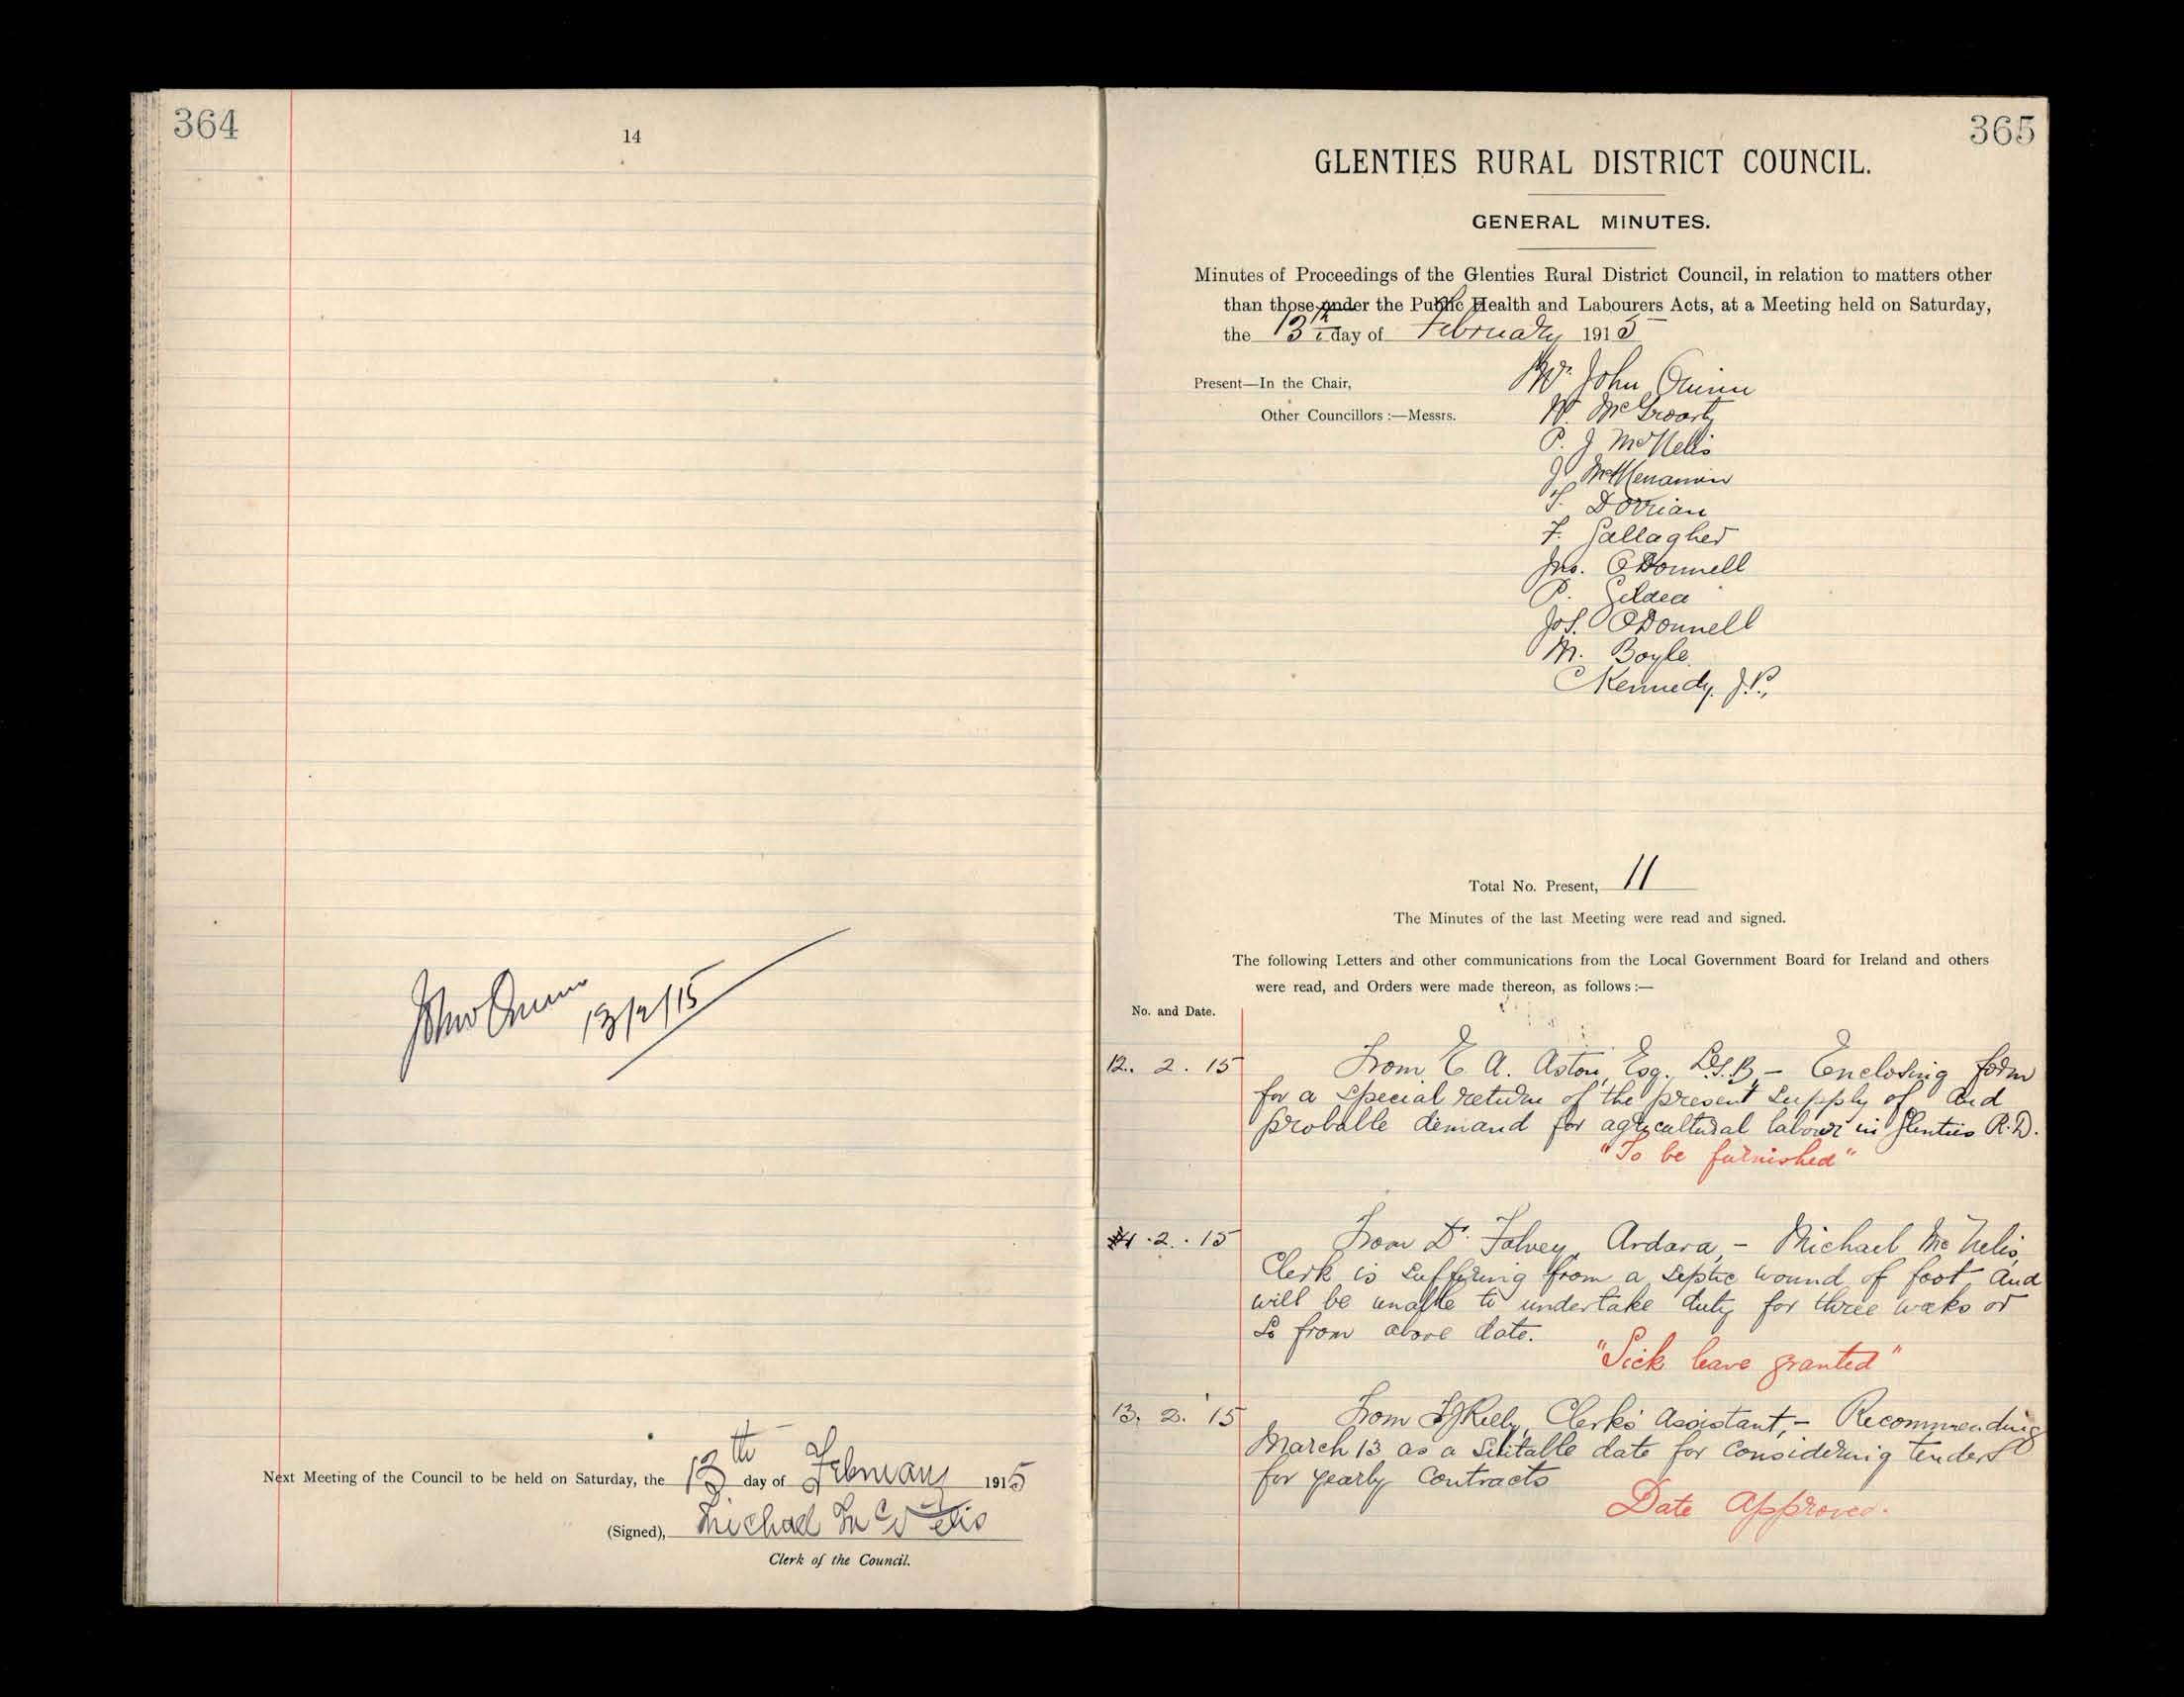 364
14
John Quinn
13/2/15
Next Meeting of the Council to be held on Saturday, the 13th day of February 1915
(Signed), Michael McNelis
Clerk of the Council.
365
GLENTIES RURAL DISTRICT COUNCIL.
GENERAL MINUTES.
Minutes of Proceedings of the Glenties Rural District Council, in relation to matters other
than those under the Public Health and Labourers Acts, at a Meeting held on Saturday,
the 13th day of February 1915
Present—In the Chair, Mr. John Quinn
Other Councillors :—Messrs. McGroarty
P. J McNelis
J. McMenamin
Dorrian
F. Gallagher
Jno. O'Donnell
P. Gildea
Jos. O'Donnell
M. Boyle
C Kennedy, J.P.,
Total No. Present, 11
The Minutes of the last Meeting were read and signed.
The following Letters and other communications from the Local Government Board for Ireland and others
were read, and Orders were made thereon, as follows :—
No. and Date.
12. 2. 15 From E. A. Aston, Esq. L.G.B, – Enclosing form
for a special return of the present supply of and
probable demand for agricultural labour in Glenties R.D.
"To be furnished"
2. 15 From Dr. Falvey, Ardara, – Michael McNelis,
Clerk is suffering from a septic wound of foot and
will be unable to undertake duty for three weeks or
so from above date.
"Sick leave granted"
13. 2. 15 From Clerk's Assistant, – Recommending
March 13 as a suitable date for considering tenders
for yearly contracts
Date Approved.